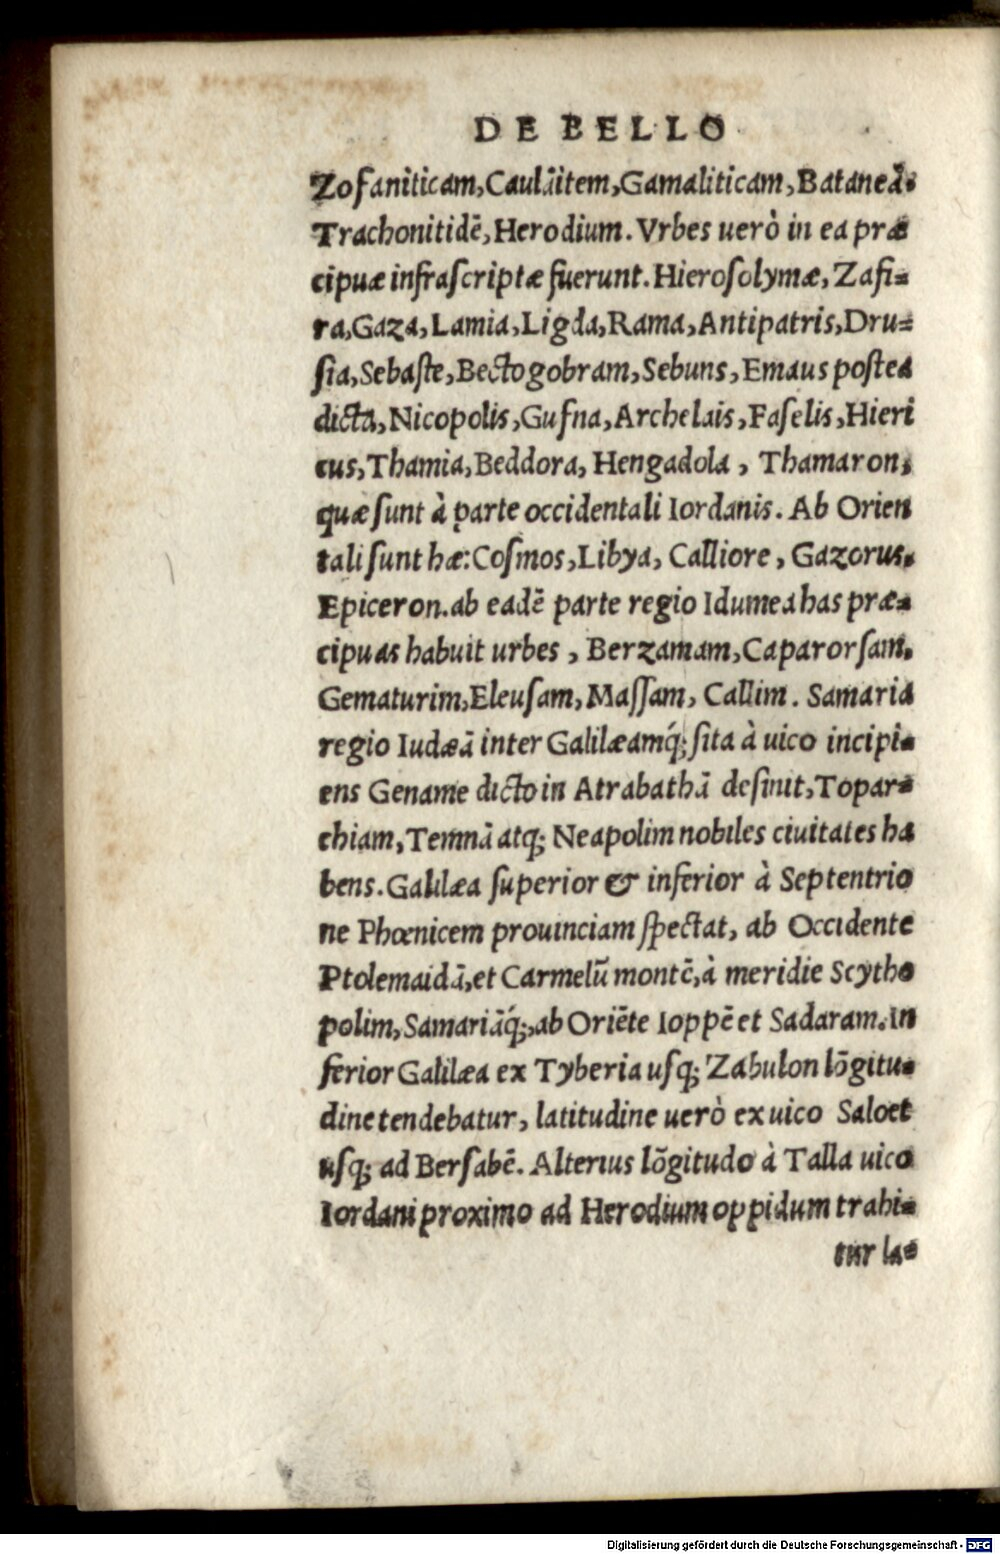 DE BELLO
Zofaniticam, Caulãitem, Gamaliticam, Bataneã.
Trachonitidẽ, Herodium. Vrbes uerò in ea præ
cipuæ infrascriptæ fuerunt. Hierosolymæ, Zafi=
ra, Gaza, Lamia, Ligda, Rama, Antipatris, Dru=
sia, Sebaste, Bectogobram, Sebuns, Emaus postea
dicta, Nicopolis, Gufna, Archelais, Faselis, Hieri
cus, Thamia, Beddora, Hengadola, Thamaron,
quæ sunt à parte occidentali Iordanis. Ab Orien
tali sunt hæ: Cosmos, Libya, Calliore, Gazorus.
Epiceron. ab eadẽ parte regio Idumea has præ=
cipuas habuit urbes, Berzamam, Caparorsam.
Gematurim, Eleusam, Massam, Callim. Samaria
regio Iudæã inter Galilæamq́; sita à uico incipi=
ens Gename dicto in Atrabathã desinit, Topar=
chiam, Temnã atq; Neapolim nobiles ciuitates ha
bens. Galilæa superior & inferior à Septentrio
ne Phœnicem prouinciam spectat, ab Occidente
Ptolemaidã, et Carmelũ montẽ, à meridie Scytho
polim, Samariãq́;, ab Oriẽte Ioppẽ et Sadaram. In
ferior Galilæa ex Tyberia usq; Zabulon lõgitu=
dine tendebatur, latitudine uerò ex uico Saloet
usq; ad Bersabẽ. Alterius lõgitudo à Talla uico
Iordani proximo ad Herodium oppidum trahi=
tur la=
Digitalisierung gefördert durch die Deutsche Forschungsgemeinschaft - DFG